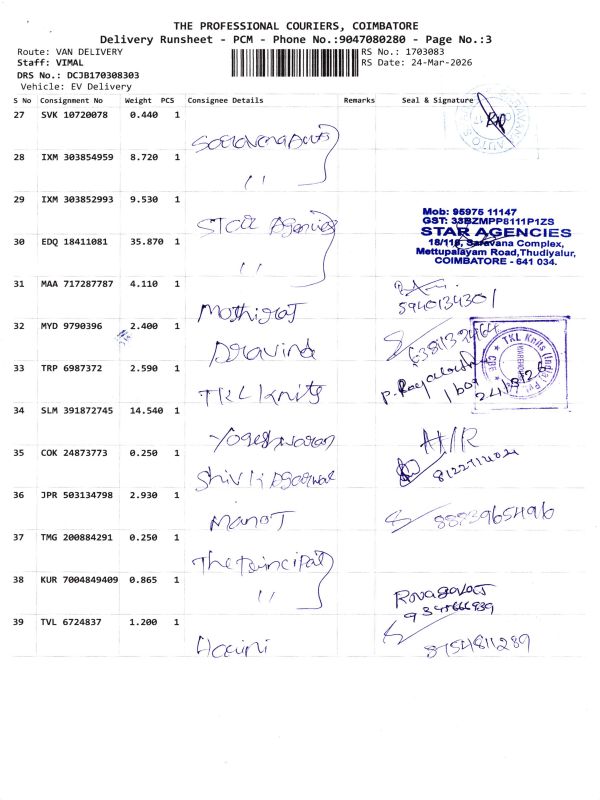 THE PROFESSIONAL COURIERS, COIMBATORE
Delivery Runsheet - PCM - Phone No.:9047080280 - Page No.:3
Route: VAN DELIVERY
Staff: VIMAL
DRS No.: DCJB170308303
Vehicle: EV Delivery
RS No.: 1703083
RS Date: 24-Mar-2026
S No Consignment No Weight PCS Consignee Details Remarks Seal & Signature
27 SVK 10720078 0.440 1
28 IXM 303854959 8.720 1
"
29 IXM 303852993 9.530 1
Star Agencies
Mob: 95975 11147
GST: 33BZMPP8111P1ZS
STAR AGENCIES
18/118, Saravana Complex,
Mettupalayam Road,Thudiyalur,
COIMBATORE - 641 034.
30 EDQ 18411081 35.870 1
"
31 MAA 717287787 4.110 1
Mothiraj
5940134301
32 MYD 9790396 2.400 1
Dravind
33 TRP 6987372 2.590 1
TKL Knits
TKL Knits (India) Pvt
CBE
24/3/26
34 SLM 391872745 14.540 1
Yogeshwaran
H/R
35 COK 24873773 0.250 1
Shiv
36 JPR 503134798 2.930 1
Manoj
8883965496
37 TMG 200884291 0.250 1
The Principal
38 KUR 7004849409 0.865 1
"
39 TVL 6724837 1.200 1
Harini
8754811289